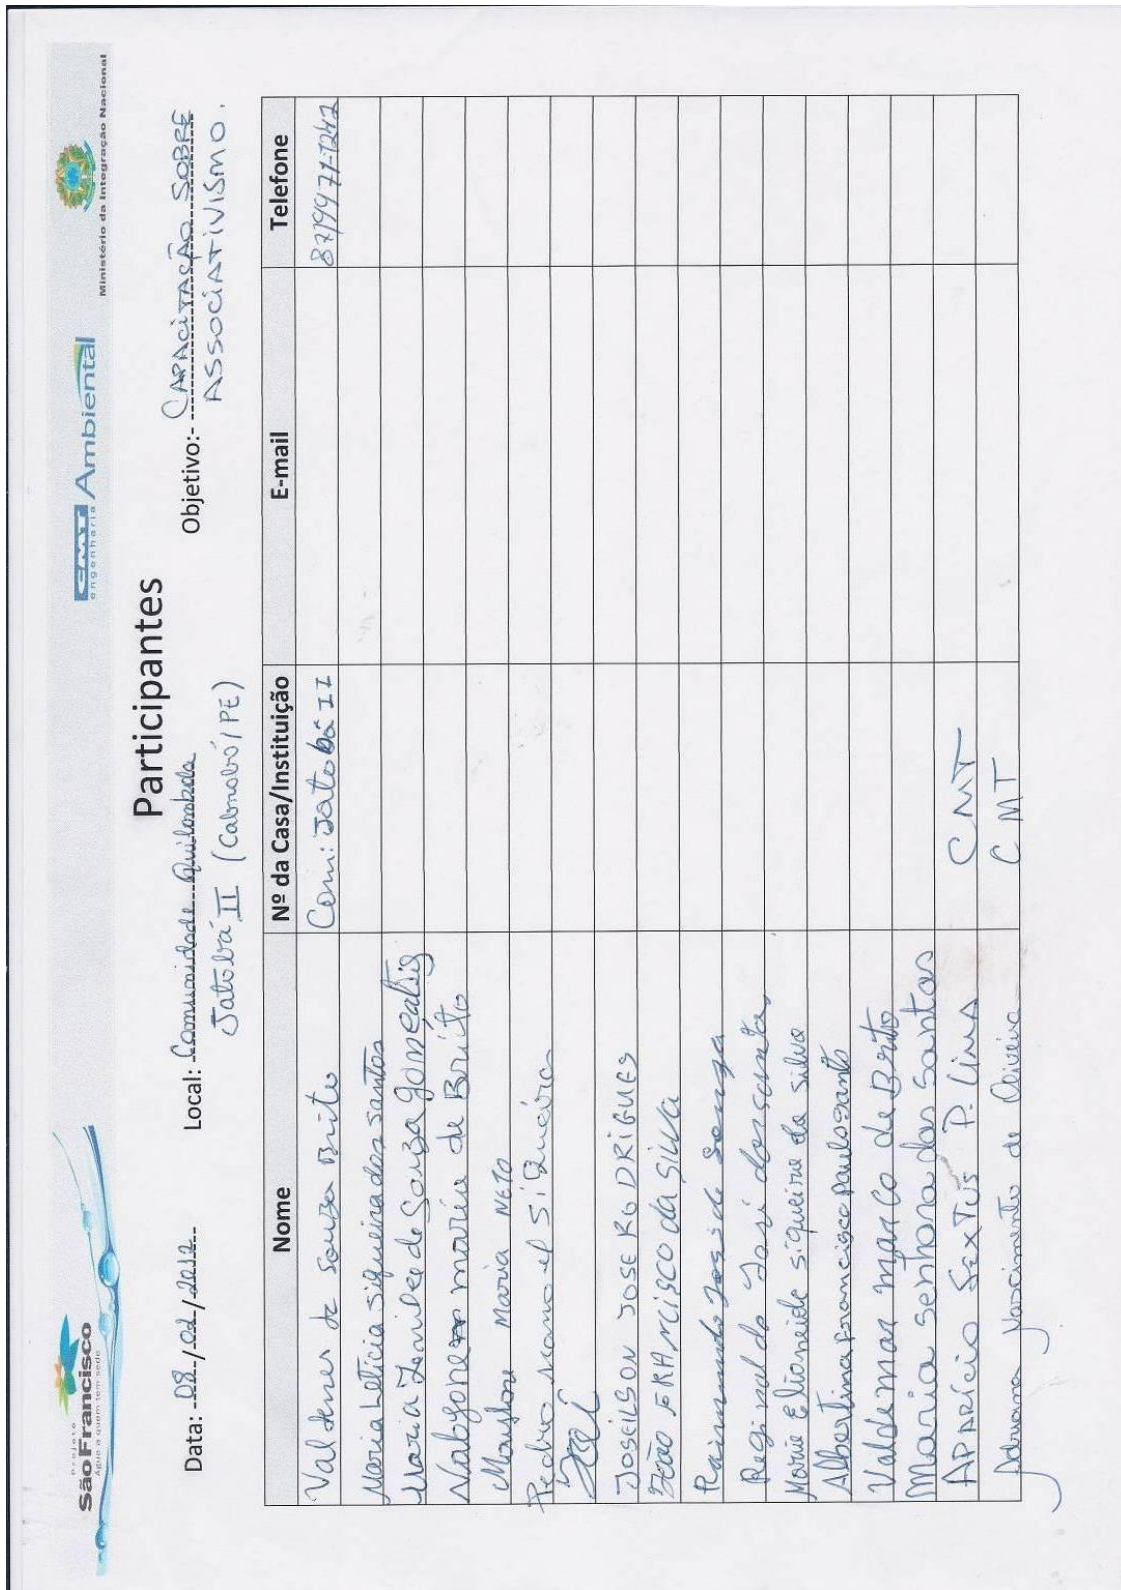 Projeto
São Francisco
Água a quem tem sede
CMT Ambiental
engenharia
Ministério da Integração Nacional
Participantes
Data: Local: Comunidade Quilombola Objetivo:- CAPACITAÇÃO SOBRE
Jatobá II (Cabrobó/PE) ASSOCIATIVISMO.
Nome Nº da Casa/Instituição E-mail Telefone
Valdenes de Souza Brito Com: Jatobá II
Maria Leticia Siqueira dos santos
Maria de Souza
maria de Brito
Maria NETO
Pedro manoel Siqueira
JOSEILSON JOSE RODRIGUES
João FRANCISCO DA SILVA
Raimundo José de Souza
Reginaldo José dos santos
Maria Elioneide siqueira da silva
Albertina Francisca Paulo
Valdemar Marco de Brito
Maria Senhora dos Santos
APARÍCIO SEXTUS P. LIMA CMT
Adriana Nascimento de Oliveira CMT